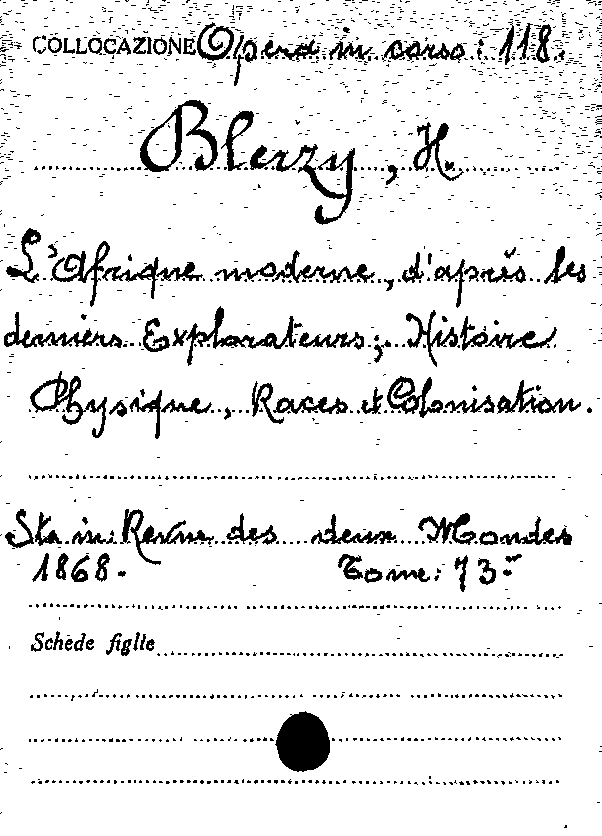 COLLOCAZIONE Opera in corso: 118.
Blerzy, H.
L'Afrique moderne, d'après les
derniers Explorateurs; Histoire
Physique, Races et Colonisation.
Sta in: Revue des deux Mondes
1868. Tome: 73.
Schede figlie